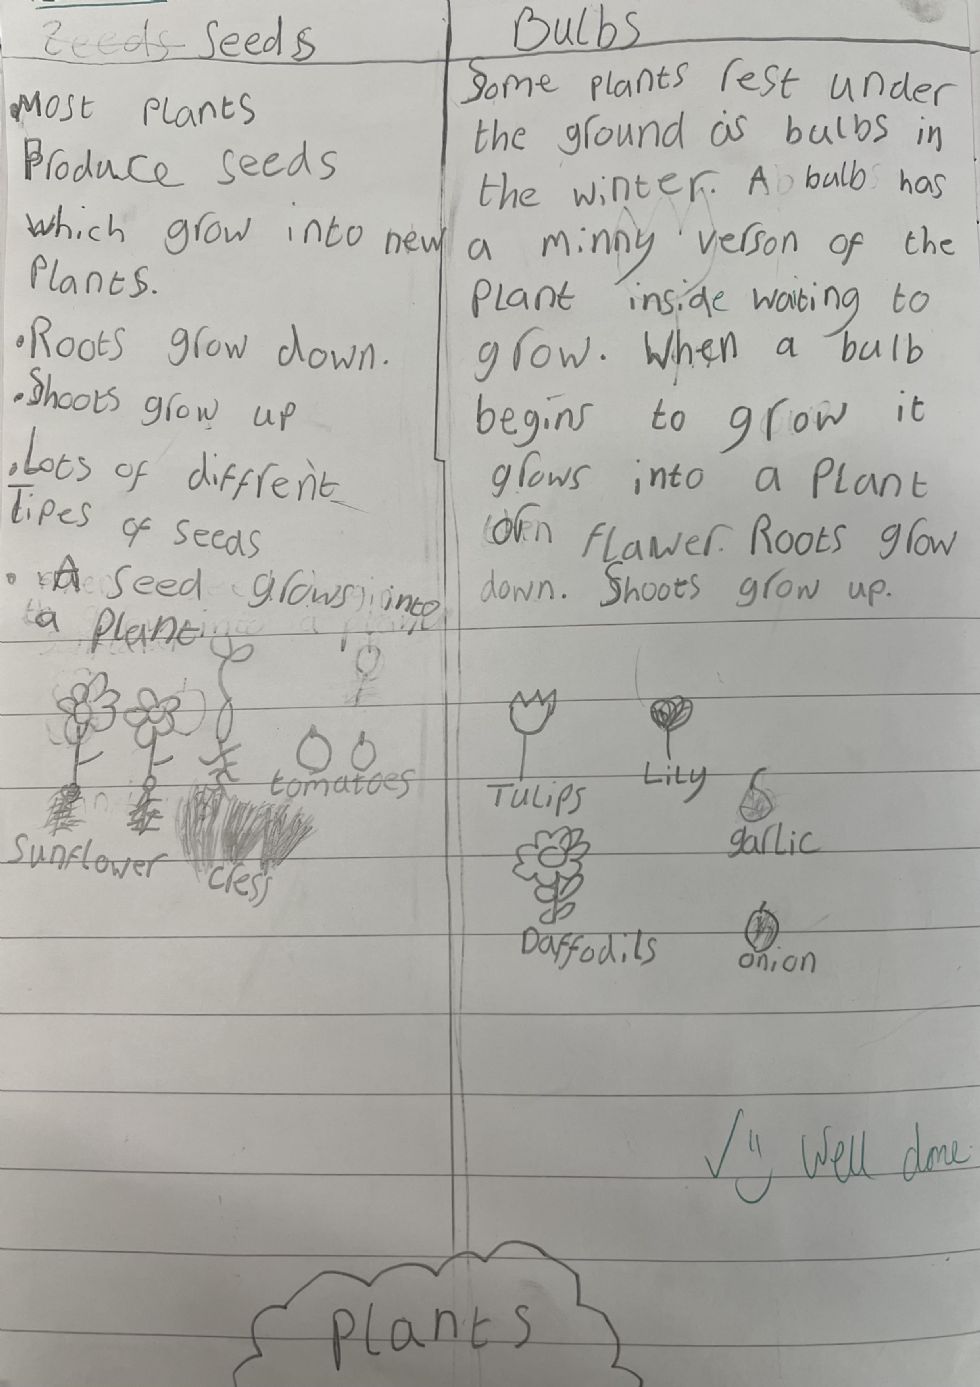 Seeds
Most Plants
Produce seeds
which grow into new
Plants.
Roots grow down.
Shoots grow up
Lots of diffrent
Tipes of seeds
A seed grows into
a Plant
Sunflower
cress
tomatoes
Bulbs
Some plants rest under
the ground as bulbs in
the winter. A bulb has
a minny verson of the
Plant inside waiting to
grow. When a bulb
begins to grow it
grows into a Plant
flawer. Roots grow
down. Shoots grow up.
Tulips
Lily
garlic
Daffodils
onion
Well done
Plants